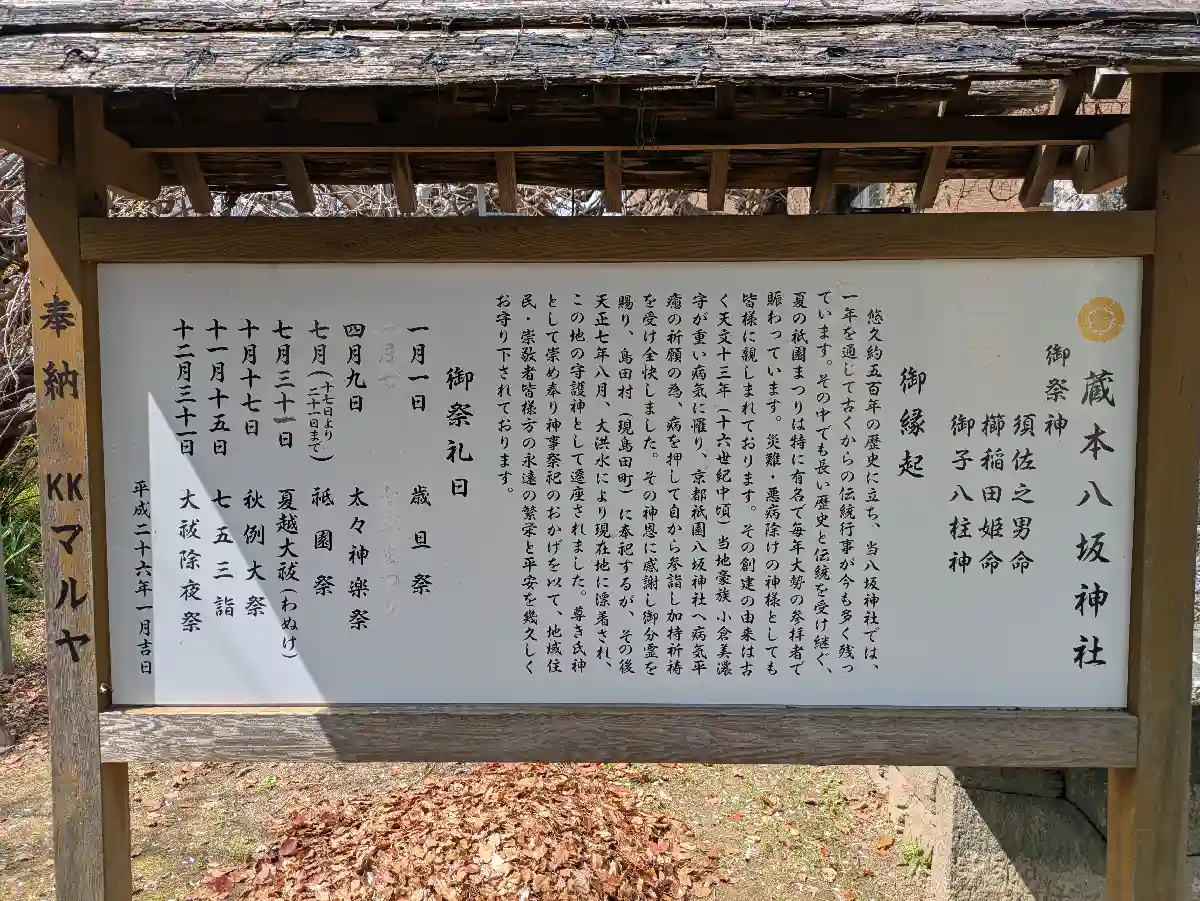 蔵本八坂神社
御祭神
須佐之男命
櫛稲田姫命
御子八柱神
御縁起
悠久約五百年の歴史に立ち、当八坂神社では、
一年を通じて古くからの伝統行事が今も多く残っ
ています。その中でも長い歴史と伝統を受け継ぐ、
夏の祇園まつりは特に有名で毎年大勢の参拝者で
賑わっています。災難・悪病除けの神様としても
皆様に親しまれております。その創建の由来は古
く天文十三年(十六世紀中頃)当地豪族 小倉美濃
守が重い病気に罹り、京都祇園八坂神社へ病気平
癒の祈願の為、病を押して自から参詣し加持祈祷
を受け全快しました。その神恩に感謝し御分霊を
賜り、島田村(現島田町)に奉祀するが、その後
天正七年八月、大洪水により現在地に漂着され、
この地の守護神として遷座されました。尊き氏神
として崇め奉り神事祭祀のおかげを以て、地域住
民・崇敬者皆様方の永遠の繁栄と平安を幾久しく
お守り下されております。
御祭礼日
一月一日 歳旦祭
四月九日 太々神楽祭
七月(十七日より二十一日まで) 祇園祭
七月三十一日 夏越大祓(わぬけ)
十月十七日 秋例大祭
十一月十五日 七五三詣
十二月三十一日 大祓除夜祭
平成二十六年一月吉日
奉納 KKマルヤ